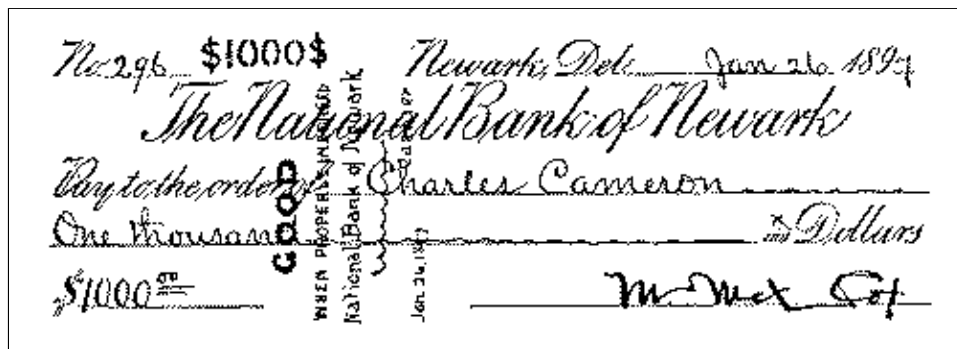 No. 296 $1000$ Newark, Del. Jan 26 1897
The National Bank of Newark
Pay to the order of Charles Cameron
One thousand Dollars
$1000 00
GOOD
WHEN PROPERLY
National Bank of Newark
Cashier
Jan. 26, 1897